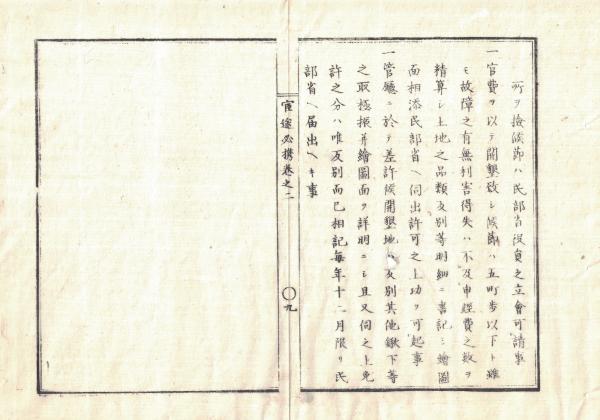 所ヲ撿候節ハ民部省役員之立會可請事
一官費ヲ以テ開墾致シ候節ハ五町歩以下ト雖
モ故障之有無利害得失ハ不及申經費之數ヲ
精算シ土地之品類反別等明細ニ書記シ繪圖
面相添民部省ヘ伺出許可之上功ヲ可起事
一管廳ニ於テ差許候開墾地ハ反別其他鍬下等
之取極振并繪圖面ヲ詳明ニシ且又伺之上免
許之分ハ唯反別而已相記毎年十二月限リ民
部省ヘ届出ヘキ事
官途必携卷之二
九